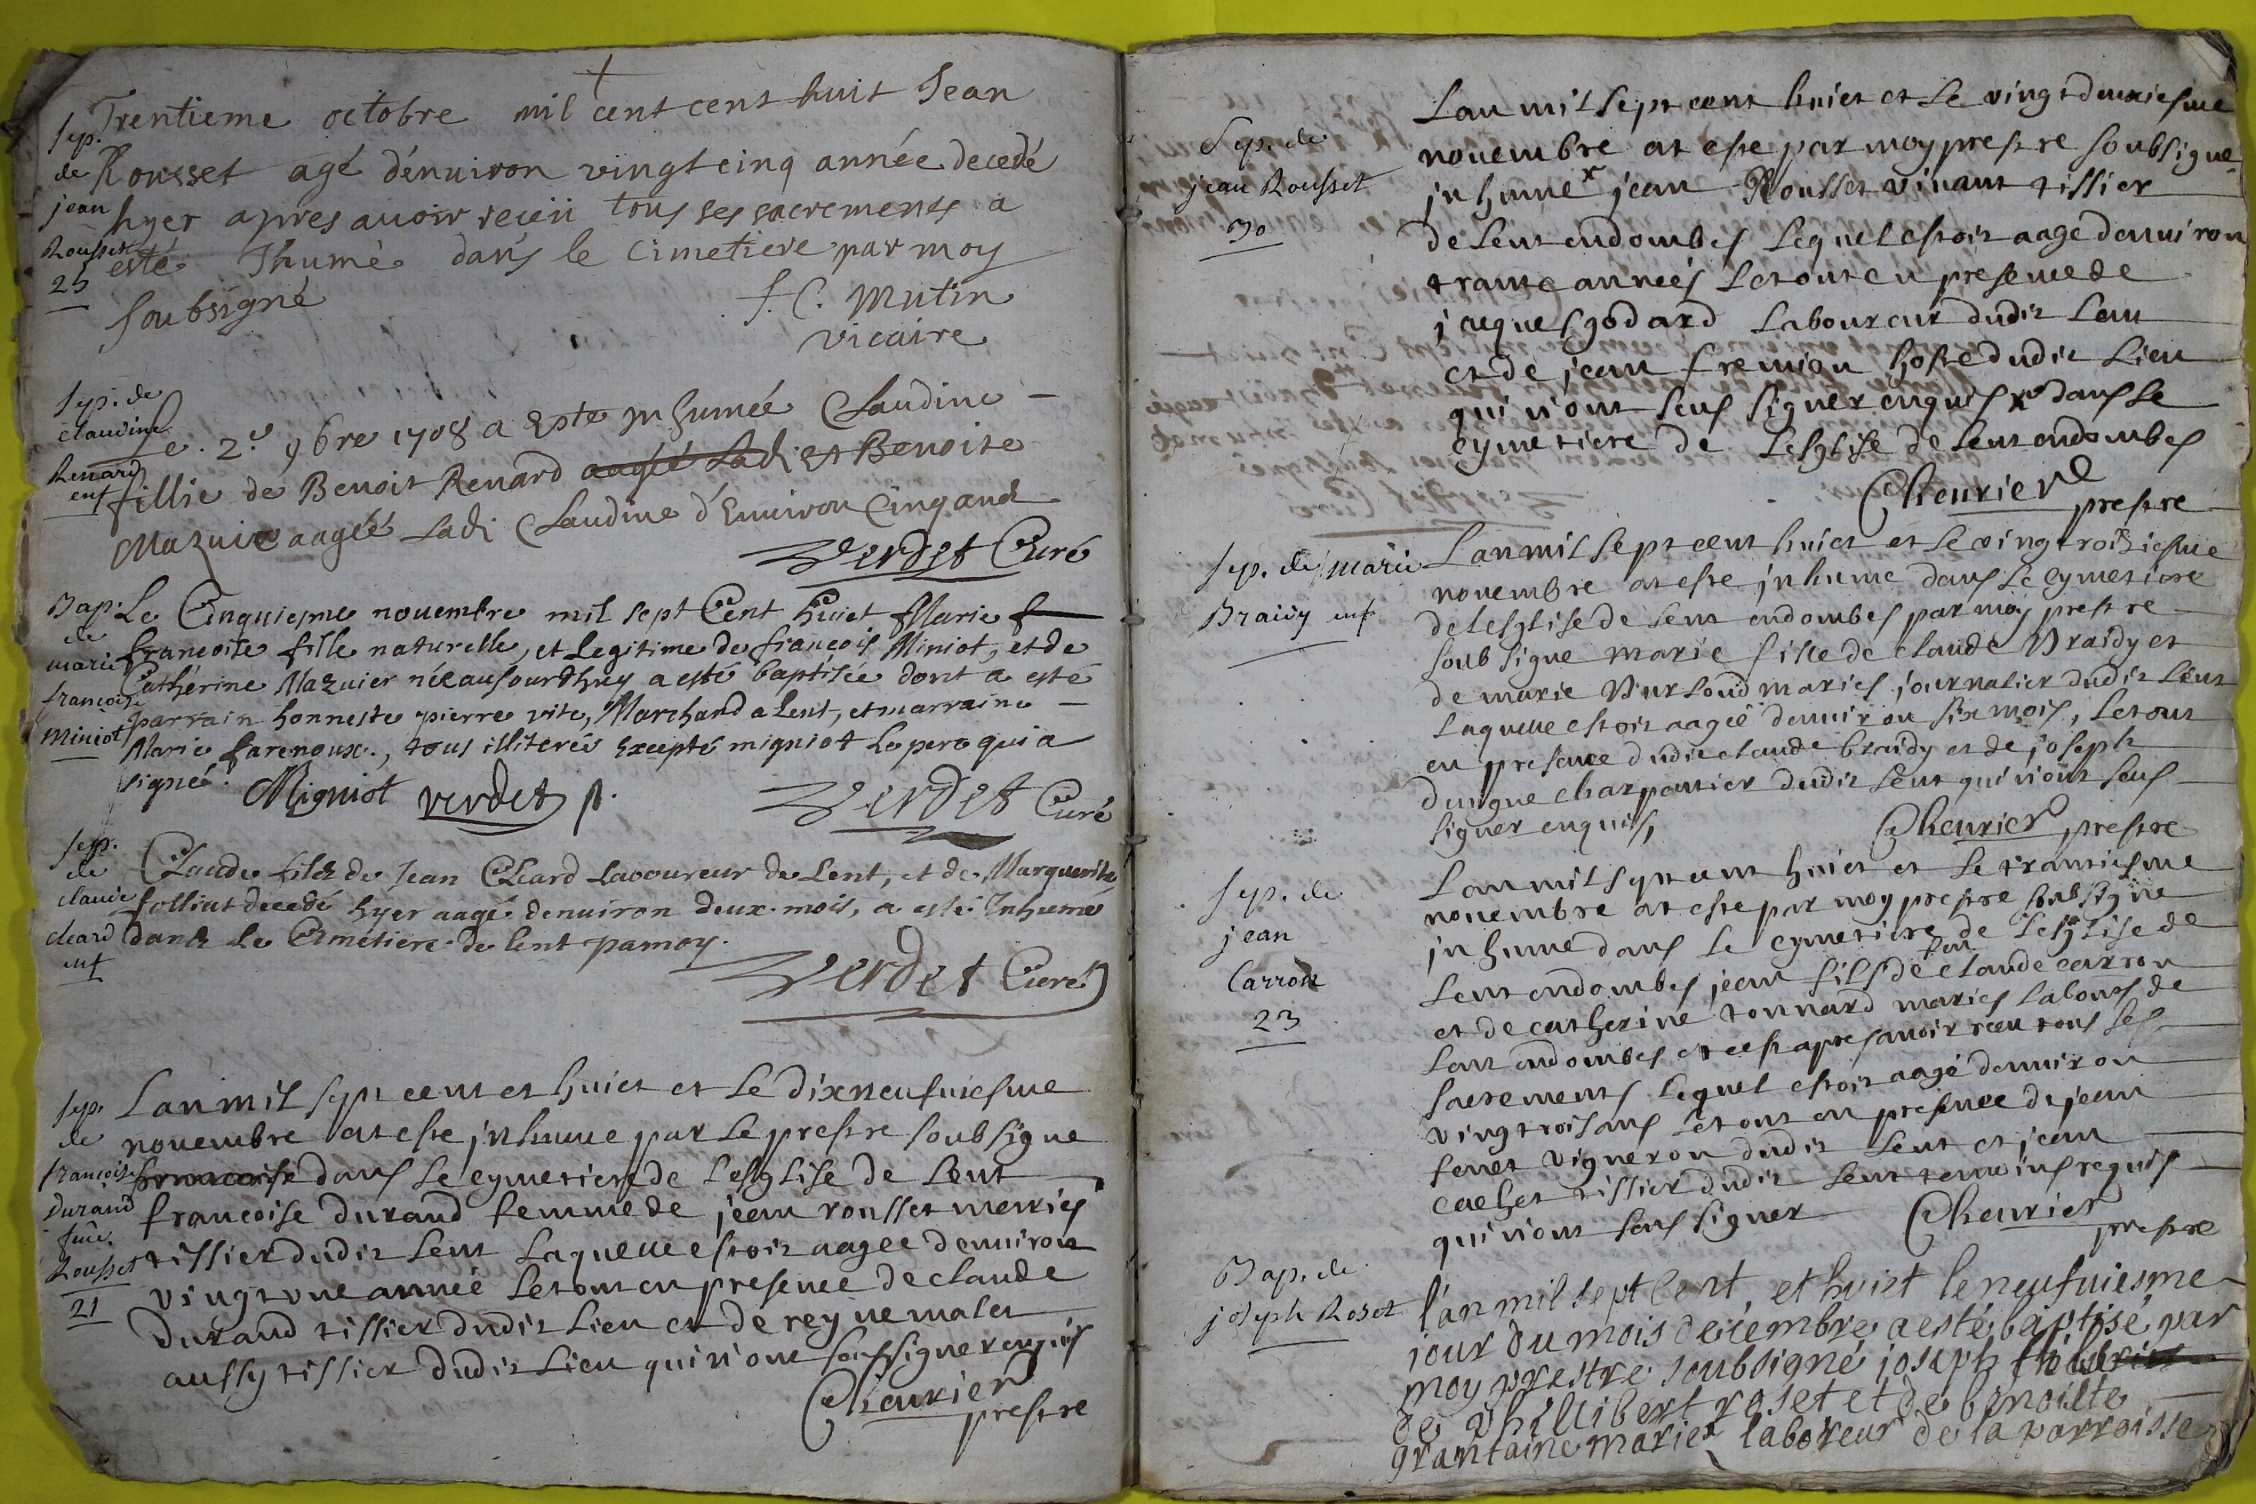 Sep.
de
jean
Rousset
25
Trentieme octobre mil cent cent huit Jean
Rousset agé dénuiron vingt cinq année decedé
hyer apres auoir reçeü tous ses sacrements a
esté Jhumé dans le Cimetiere par moy
soubsigné
f. C. Mutin
vicaire
Sep. de
claudine
Renard
enf
Le. 2.e 9bre 1708 a Este jnhumeé Claudine
fillie de Benoit Renard et Benoite
Mazuir aagéé Ladi Claudine d'Enuiron Cinq ands
Verdet Curé
Bap.
de
marie
francoise
Miniot
Le Cinquiesme nouembre mil sept Cent huict Marie f
francoise fille naturelle, et Legitime de françois Miniot, et de
Catherine Mazuier née aujourdhuy a esté baptisée dont a esté
parrain honneste pierre vite, Marchand a Lent, et marraine
Marie farenoux., tous illiterés Excepté migniot Le pere qui a
signé. Migniot verdet p. Verdet Curé
Sep.
de
claude
cleard
enf
Claude filz de Jean Cleard Laboureur de Lent, et de Marguerite
folliut decedé hyer aagé denuiron deux mois, a esté Inhumé
dans Le Cimetiere de lent pamoy.
Verdet Curé
Sep.
de
francoise
Durand
fme
Rousset
21
Lan mil sept cent et huict et Le dixneufuiesme
nouembre at este jnhume par Le prestre soubsigne
dans Le cymetiere de Lesglise de Lent
francoise durand femme de jean rousset merries
tissier dudit Lent Laquelle estoit aagee denuiron
vingt vne année Le tout en presence de claude
durand tissier dudit Lieu et de reyne malet
aussy tissier dudit Lieu qui n'ont seus signer enquis
Cheurier
prestre
Sep. de
jean Rousset
30
Lan mil sept cent huict et Le vingt deuxiesme
nouembre at este par moy prestre soubsigne
jnhume x jean Rousset viuant tissier
de Lent endombes Lequel estoit aage denuiron
trante années Le tout en presence de
jacques godard Laboureur dudit Lent
et de jean fremion hoste dudit Lieu
qui n'ont seus signer enquis x dans Le
cymetiere de Lesglise de Lent endombes
Cheurier
prestre
Sep. de marie
Braidy enf
Lan mil sept cent huict et Le vingtroisiesme
nouembre at este jnhume dans Le cymetiere
de Lesglise de Lent endombes par moy prestre
soubsigne marie fille de claude Braidy et
de marie Burloud maries journalier dudit Lent
Laquelle estoit aagée denuiron six mois, Le tout
en presence dudit claude braidy et de joseph
charpantier dudit Lent qui n'ont seus
signer enquis, Cheurier prestre
Sep. de
jean
Carron
23
Lan mil sept cent huict et Le trantiesme
nouembre at este par moy prestre soubsigne
jnhume dans Le cymetiere de Lesglise de
Lent endombes jean fils de feu claude carron
et de catherine tonnard maries Labours de
Lent endombes et cest apres auoir receu tous ses
sacrements Lequel estoit aagé denuiron
vingtrois ans Le tout en presence de jean
feuet vigneron dudit Lent et jean
cachet tissier dudit Lent temoins requis
qui n'ont seus signer Cheurier
prestre
Bap. de
joseph Roset
l'an mil sept cent et huict le neufuiesme
jour du mois decembre a esté baptisé par
moy prestre soubsigné joseph
de philibert roset et de benoiste
grantaine mariex laboreur de la parroisse